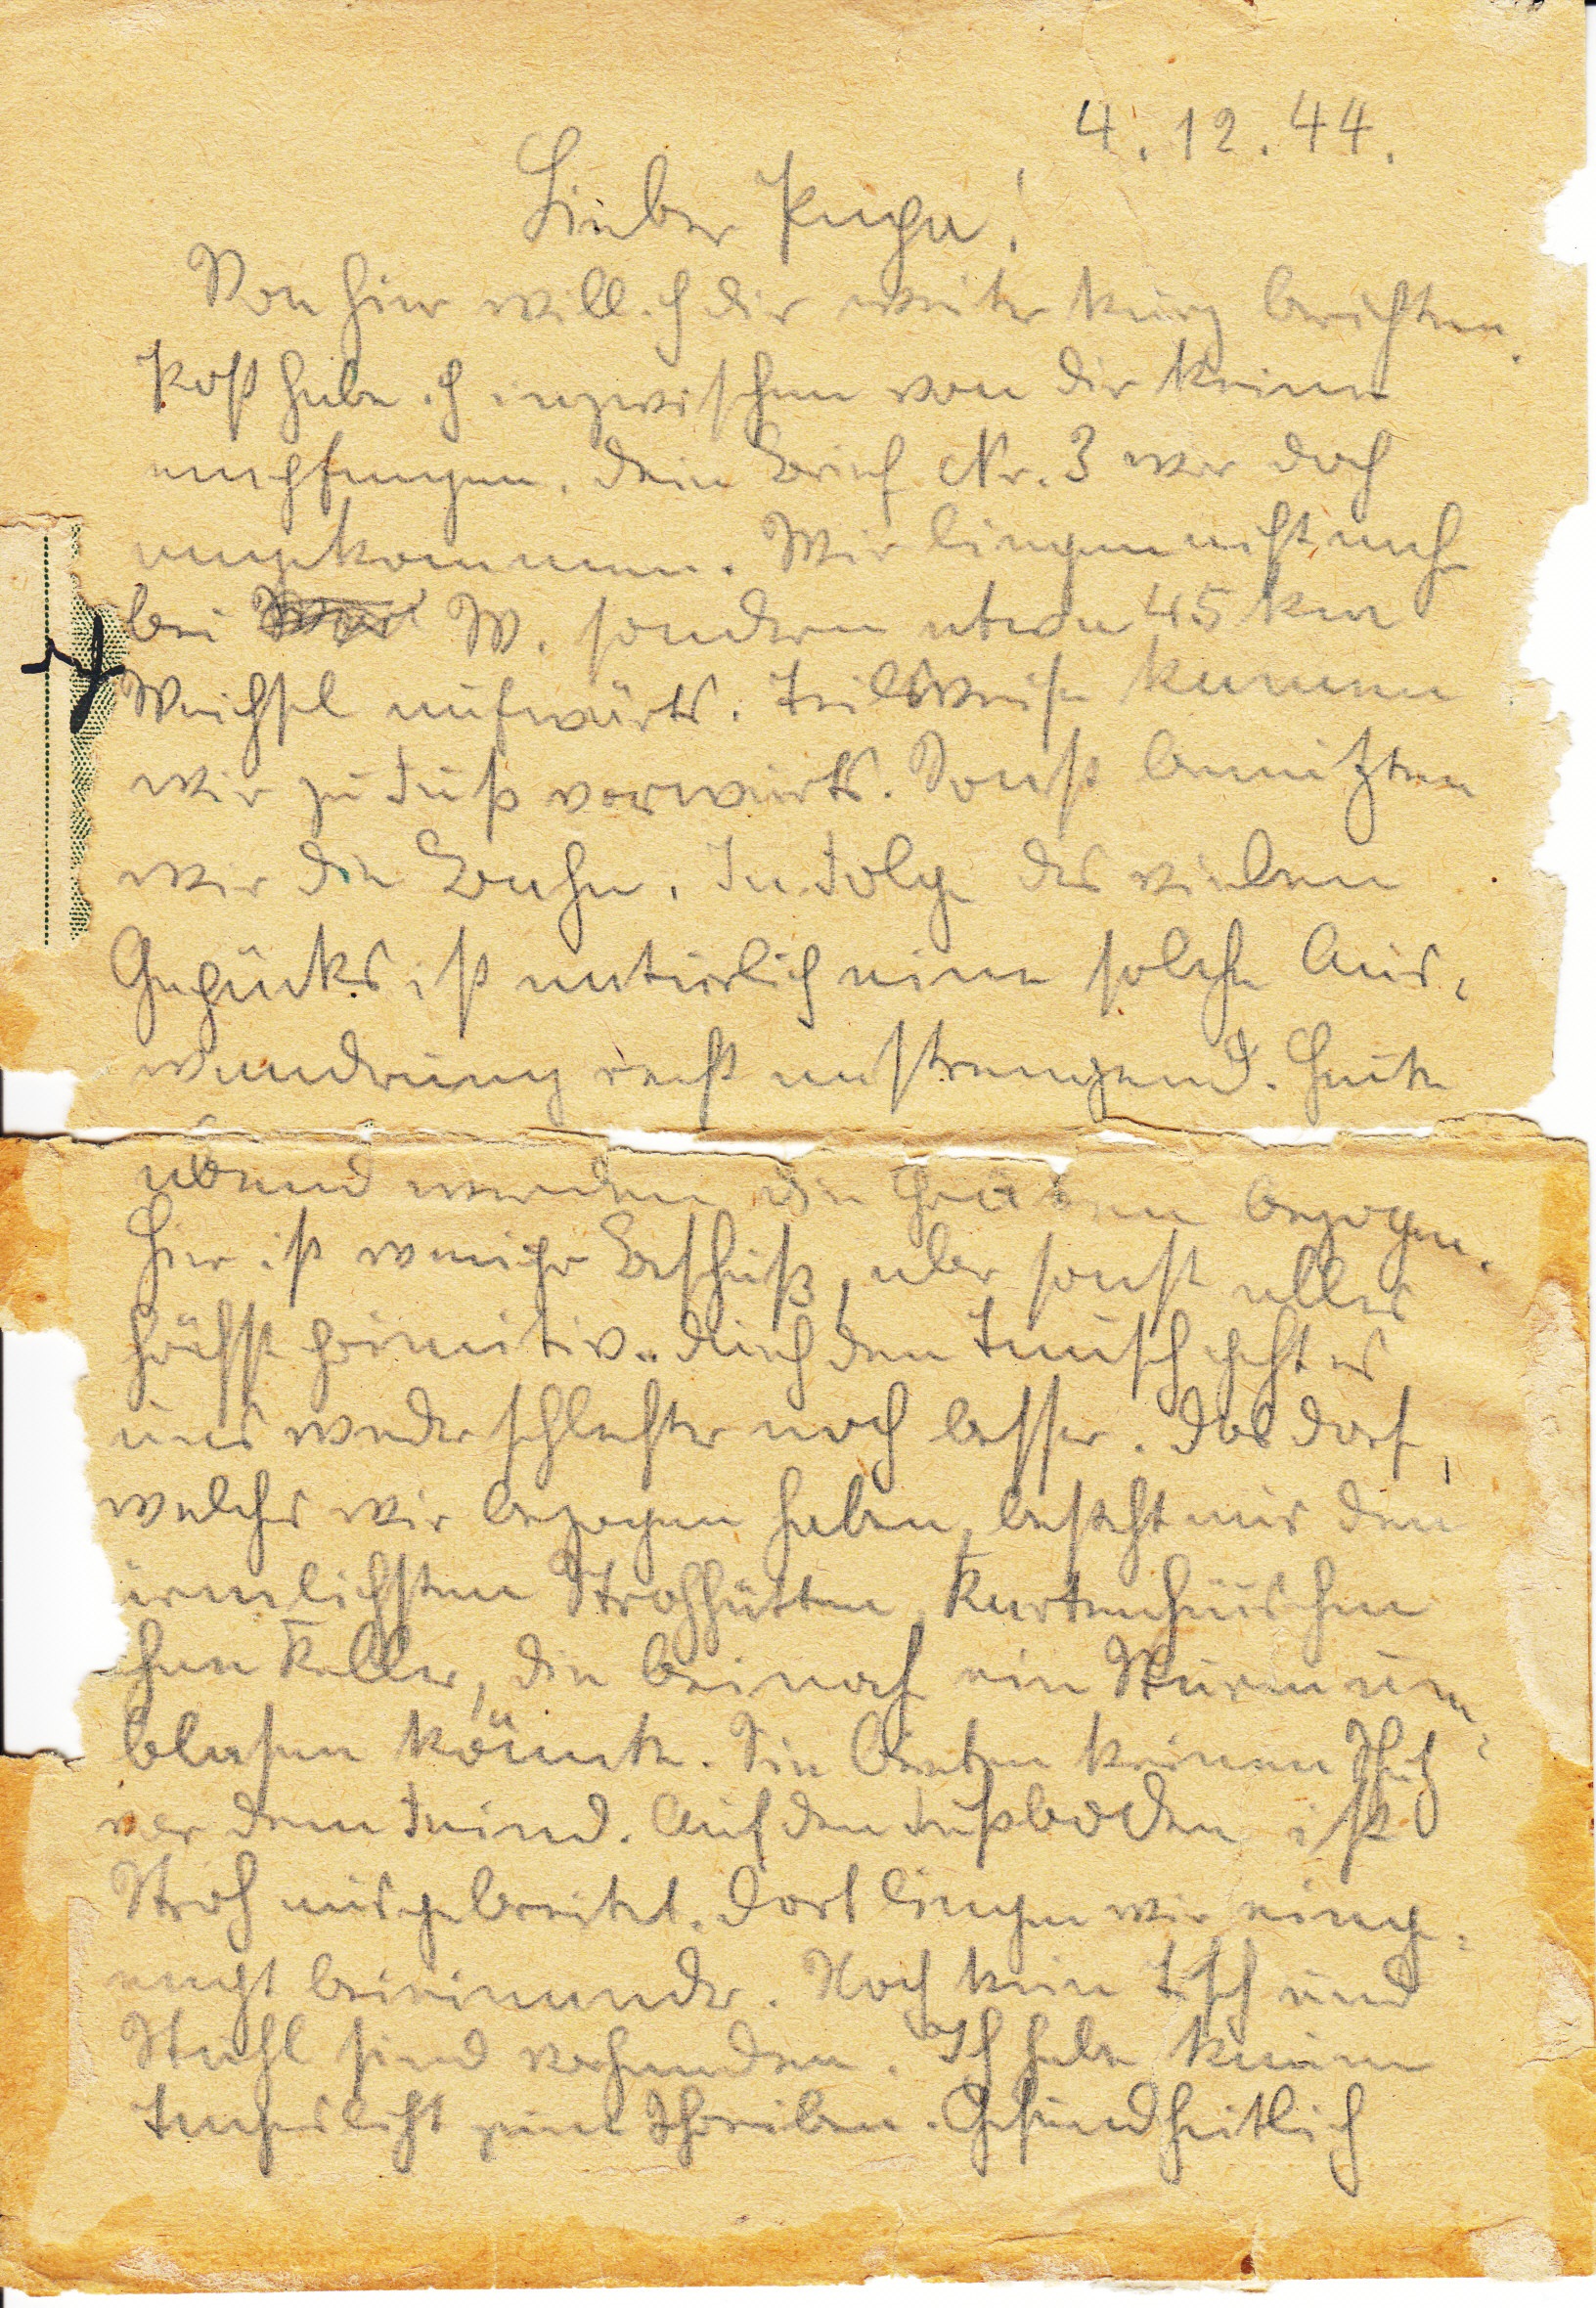 4.12.44.
Lieber Papa!
Von hier will ich dir weiter kurz berichten.
Post habe ich inzwischen von dir keine
empfangen. Dein Brief Nr. 3 war doch
angekommen. Wir liegen nicht mehr
bei W. sondern etwa 45 km
Weichsel aufwärts. Teilsweise kamen
wir zu Fuß vorwärts. Sonst benutzten
wir die Bahn. In Folge des vielen
Gepäcks ist natürlich eine solche Aus-
wandrung recht anstrengend. Heute
abend werden die Gräben bezogen.
Hier ist weniger Beschuß, aber sonst alles
höchst primitiv. Durch den Tausch geht es
uns weder schlechter noch besser. Das Dorf,
welches wir bezogen haben, besteht aus den
ärmlichsten Strohhütten, Kartenhäuschen
ohne Keller, die beinah ein Sturm um-
blasen könnte. Sie bieten keinen Schutz
vor dem Feind. Auf den Fußboden ist
Stroh ausgebreitet. Dort liegen wir einge-
engt beieinander. Noch kein Tisch und
Stuhl sind vorhanden. Ich habe kaum
Tageslicht zum Schreiben. Gesundheitlich